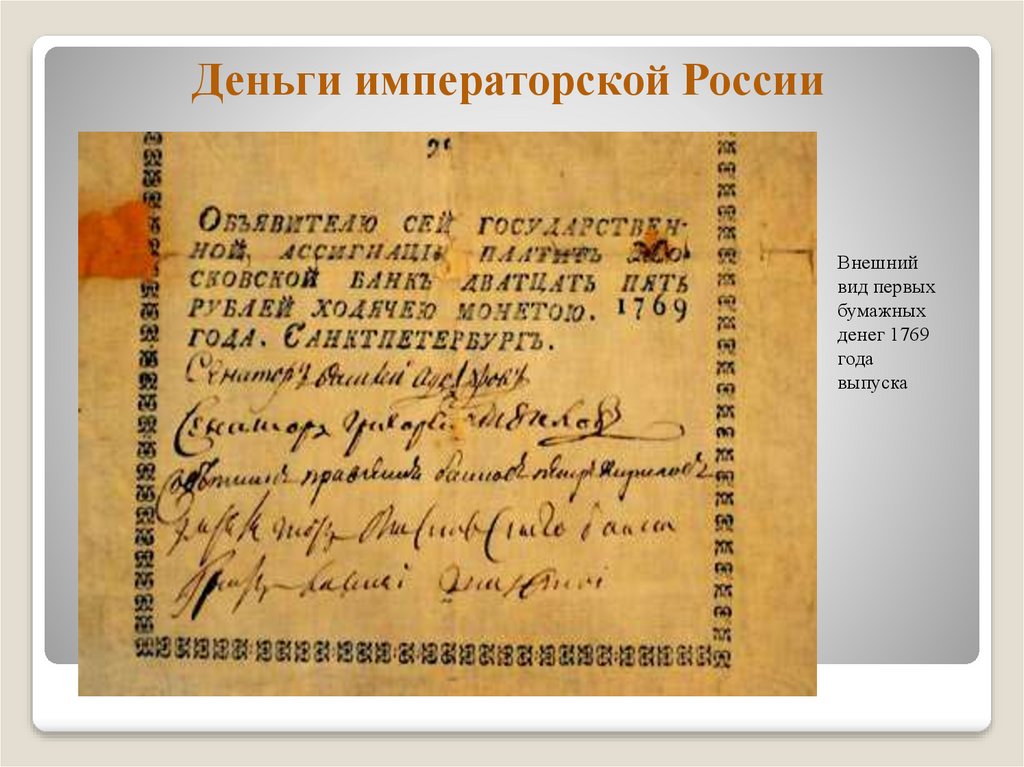 Деньги императорской России
ОБЪЯВИТЕЛЮ СЕЙ ГОСУДАРСТВЕН-
НОЙ АССИГНАЦІИ ПЛАТИТЪ МОС
СКОВСКОЙ БАНКЪ ДВАТЦАТЬ ПЯТЬ
РУБЛЕЙ ХОДЯЧЕЮ МОНЕТОЮ. 1769
ГОДА. САНКТПЕТЕРБУРГЪ.
Сенаторъ
Сенаторъ Григорей
правления банковъ петръ
банка
Внешний
вид первых
бумажных
денег 1769
года
выпуска